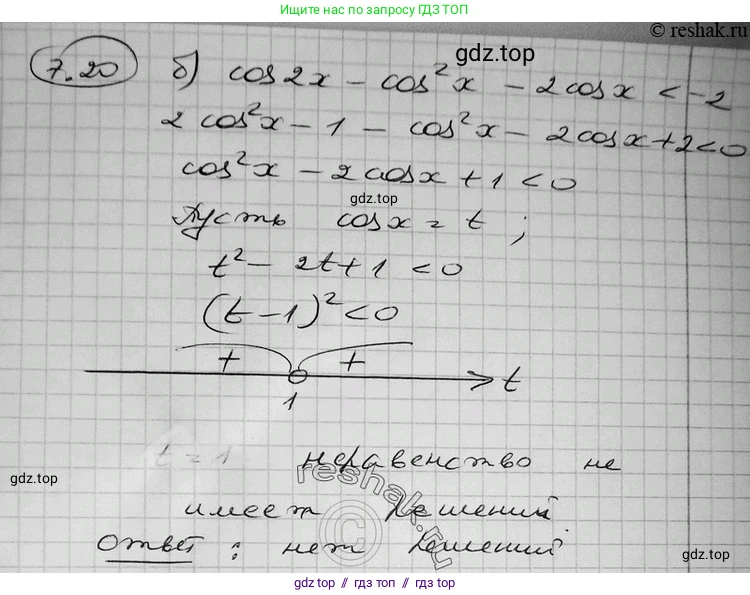 Ищите нас по запросу ГДЗ ТОП
© reshak.ru
gdz.top
7.20 б) cos2x - cos²x - 2cosx < -2
2cos²x - 1 - cos²x - 2cosx + 2 < 0
cos²x - 2cosx + 1 < 0
gdz.top
Пусть cosx = t ;
t² - 2t + 1 < 0
(t - 1)² < 0
+ +
t
1
t = 1 неравенство не
gdz.top
gdz.top
reshak.ru
©
имеет решений.
Ответ : нет решений
gdz.top
gdz.top // гдз топ // gdz.top